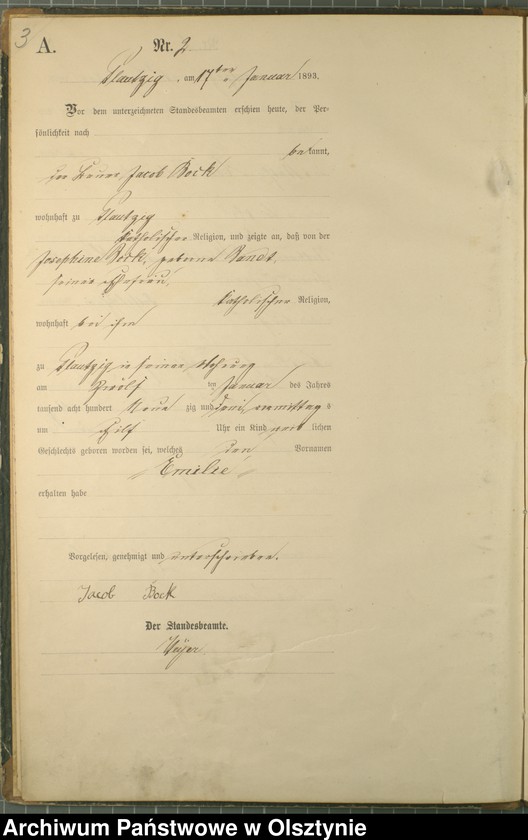 3
A.
Nr. 2
Plautzig am 17ten Januar 1893.
Vor dem unterzeichneten Standesbeamten erschien heute, der Per-
sönlichkeit nach
bekannt,
der Bauer Jacob Bock
wohnhaft zu Plautzig
katholischer Religion, und zeigte an, daß von der
Josephine Bock, geborne
seiner Ehefrau,
katholischer Religion,
wohnhaft bei ihm
zu Plautzig in seiner Wohnung
am zwölf ten Januar des Jahres
tausend acht hundert neun zig und drei, vormittags
um elf Uhr ein Kind lichen
Geschlechts geboren worden sei, welches den Vornamen
Emilie
erhalten habe
Vorgelesen, genehmigt und unterschrieben.
Jacob Bock
Der Standesbeamte.
Archiwum Państwowe w Olsztynie